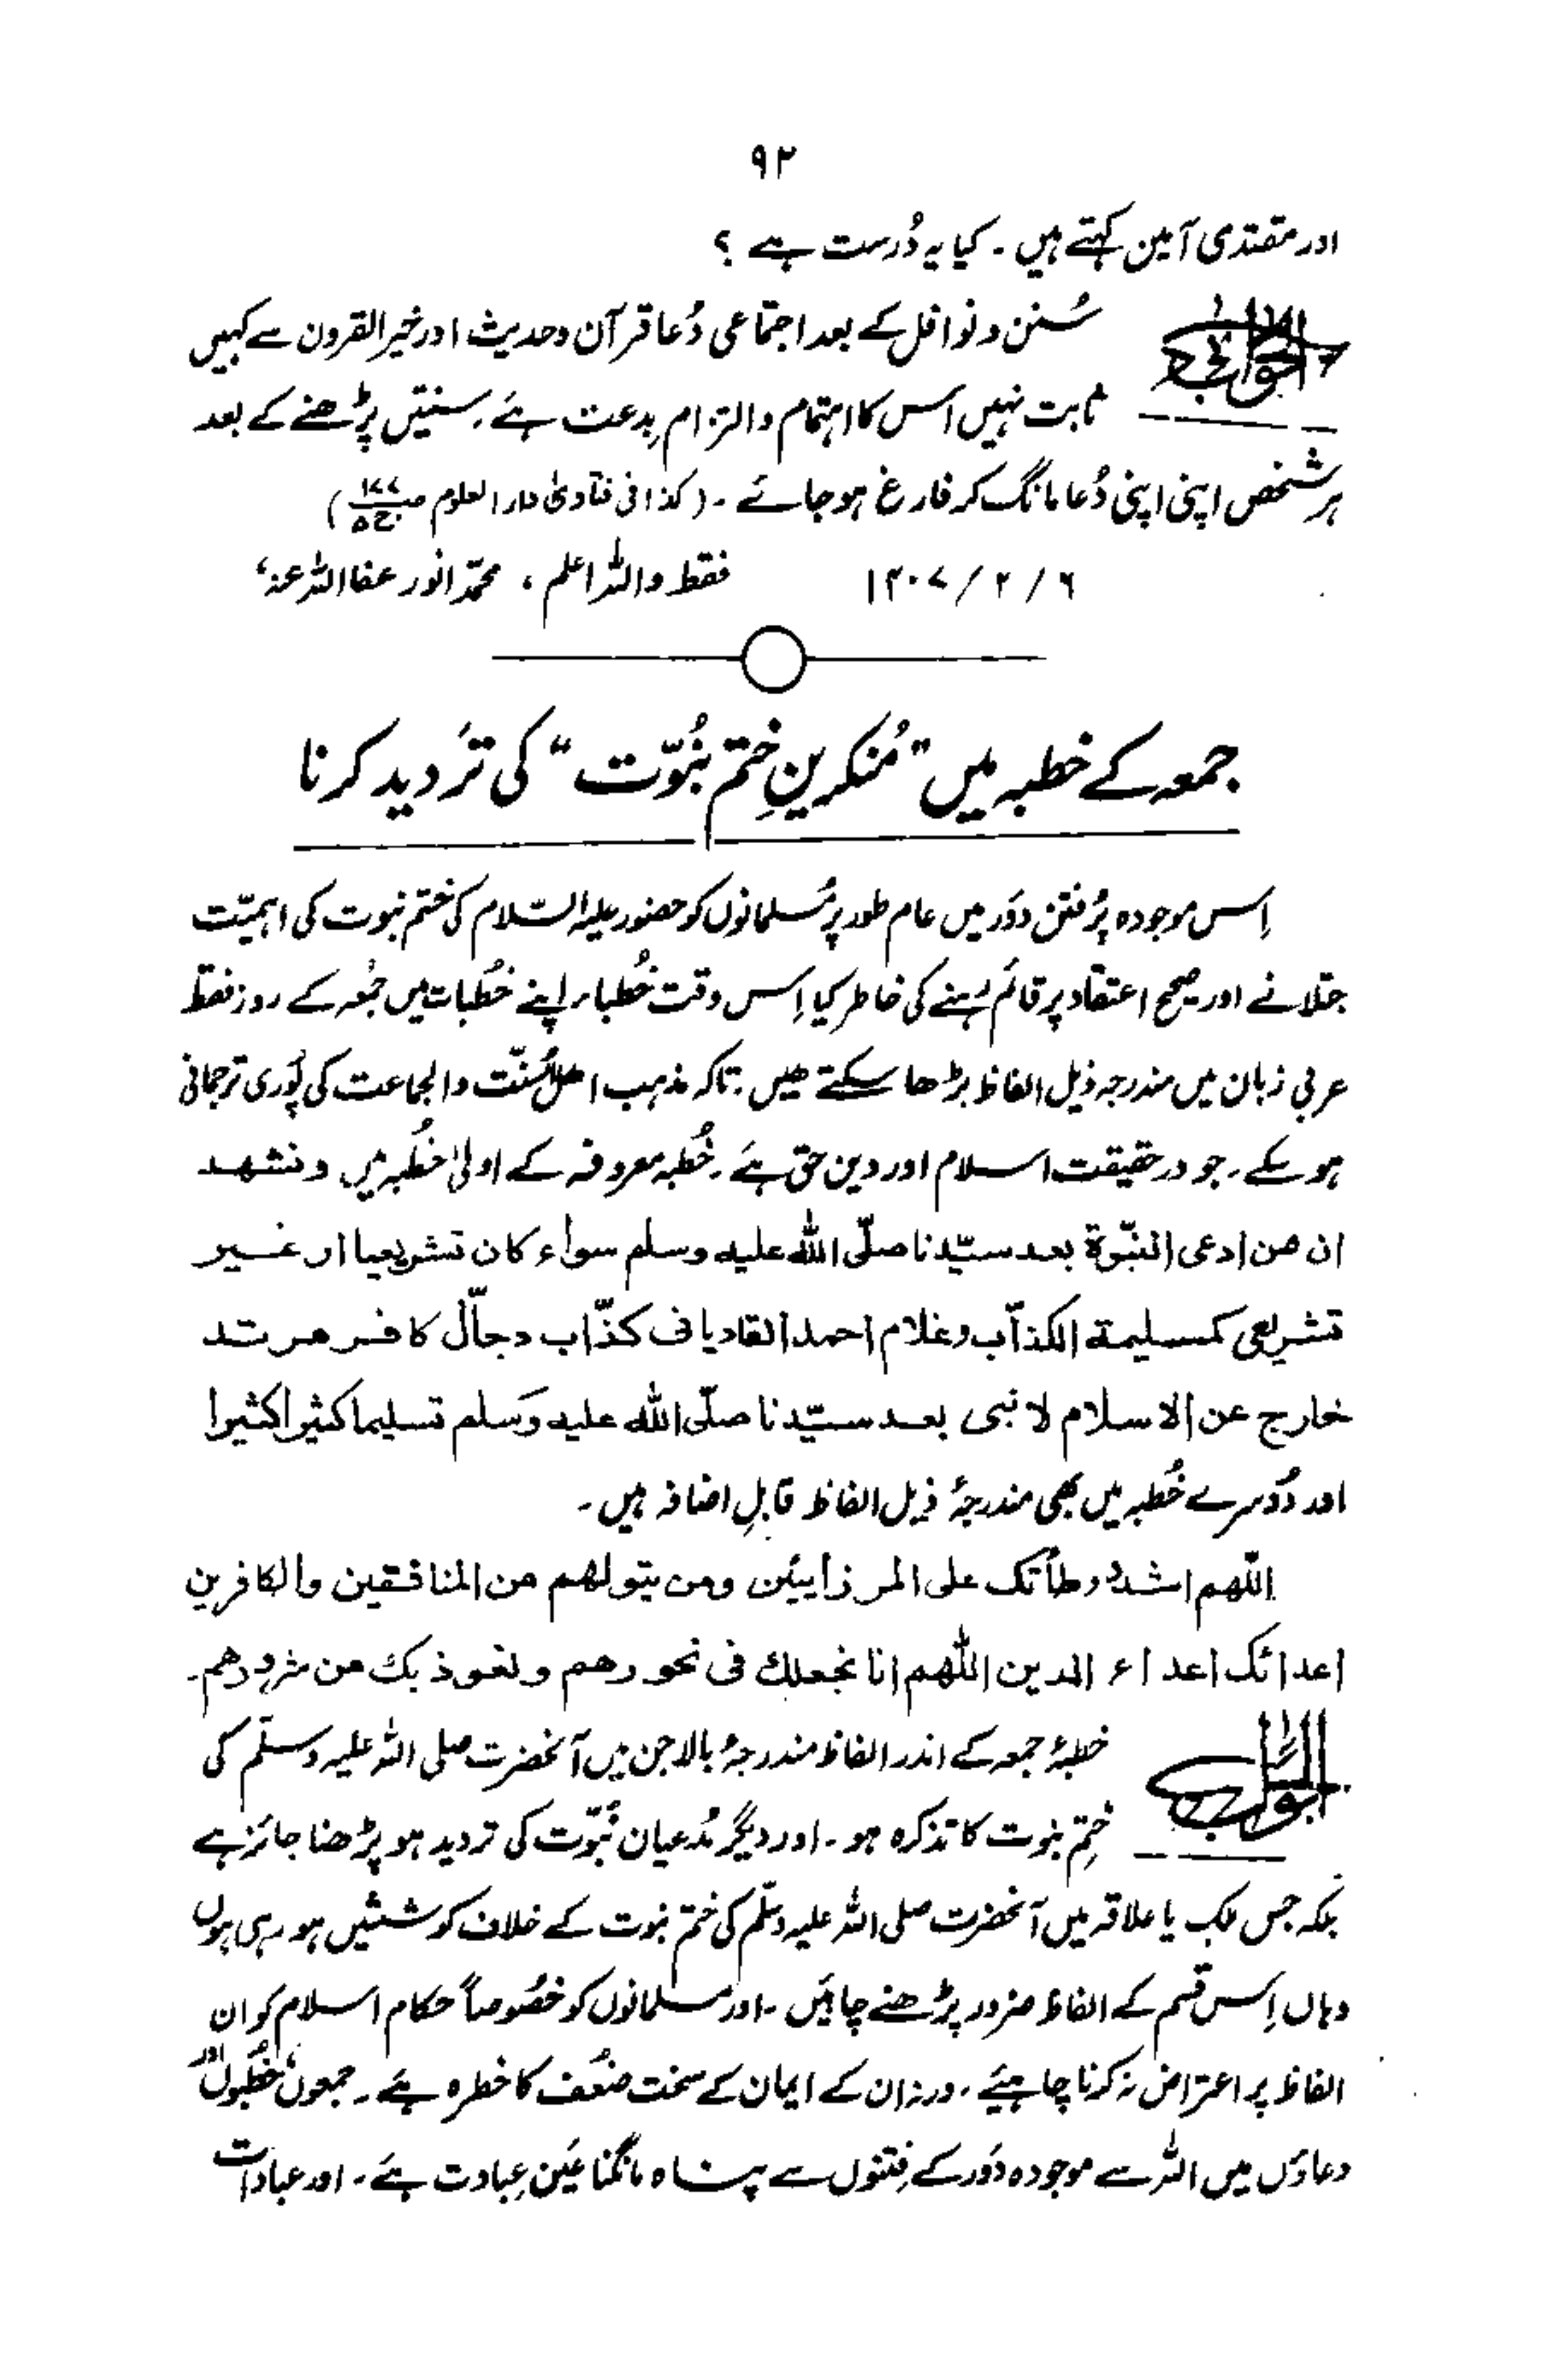 ۹۲
اور مقتدی آمین کہتے ہیں ۔ کیا یہ دُرست ہے ؟
الجواب
سُنن و نوافل کے بعد اجتماعی دُعا قرآن و حدیث اور خیر القرون سے کہیں
ثابت نہیں اس کا اہتمام و التزام بدعت ہے ۔ سنتیں پڑھنے کے بعد
ہر شخص اپنی اپنی دُعا مانگ کر فارغ ہو جائے ۔ (کذا فی فتاویٰ دار العلوم ج ۵)
فقط واللہ اعلم ، محمّد انور عفا اللہ عنہ، ۶ / ۲ / ۱۴۰۷
جمعہ کے خطبہ میں "مُنکرینِ ختمِ نبُوّت" کی تَردید کرنا
اِس موجودہ پُرفتن دَور میں عام طور پر مُسلمانوں کو حضور علیہ السّلام کی ختم نبوت کی اہمیّت
جتلانے اور صحیح اعتقاد پر قائم رہنے کی خاطر کیا اِس وقت خُطباء اپنے خُطبات میں جُمعہ کے روز فقط
عربی زبان میں مندرجہ ذیل الفاظ بڑھا سکتے ہیں ، تاکہ مذہب اہل سُنّت والجماعت کی پُوری ترجمانی
ہو سکے ۔ جو درحقیقت اسلام اور دین حق ہے ۔ خُطبہ معروفہ کے اولیٰ خُطبہ میں ونشهد
ان من ادعى النبّوة بعد سیّدنا صلّى الله علیه وسلم سواء کان تشریعیا او غیر
تشریعی کمسیلمة الکذّاب وغلام احمد القادیانی کذّاب دجّال کافر مرتد
خارج عن الاسلام لا نبی بعد سیّدنا صلّى الله علیه وَسلم تسلیما کثیرا کثیرا
اور دُوسرے خُطبہ میں بھی مندرجۂ ذیل الفاظ قابلِ اضافہ ہیں ۔
اللّهم اشدد وطأتک علی المرزائیین ومن یتولهم من المنافقین والکافرین
اعدائک اعداء الدین اللّهم انا نجعلک فی نحورهم ونعوذ بک من شرورهم ۔
الجواب
خطبۂ جمعہ کے اندر الفاظ مندرجۂ بالا جن میں آنحضرت صلی اللہ علیہ وسلّم کی
ختمِ نبوت کا تذکرہ ہو ۔ اور دیگر مُدعیان نُبوّت کی تردید ہو پڑھنا جائز ہے
بلکہ جس ملک یا علاقہ میں آنحضرت صلی اللہ علیہ وسلّم کی ختم نبوت کے خلاف کوششیں ہو رہی ہوں
وہاں اِس قسم کے الفاظ ضرور پڑھنے چاہئیں ۔ اور مسلمانوں کو خصُوصاً حکام اسلام کو ان
الفاظ پر اعتراض نہ کرنا چاہیئے ، ورنہ ان کے ایمان کے سخت ضعُف کا خطرہ ہے ۔ جمعوں، خطبوں اور
دعاؤں میں اللہ سے موجودہ دَور کے فِتنوں سے پناہ مانگنا عَین عِبادت ہے ۔ اور عبادات